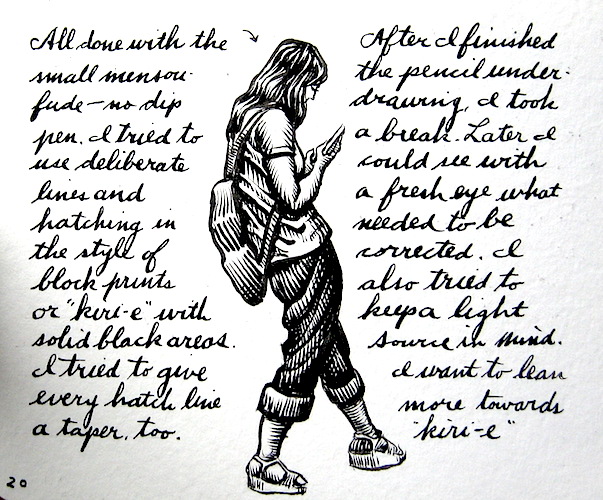 All done with the
small mensou
fude - no dip
pen. I tried to
use deliberate
lines and
hatching in
the style of
block prints
or "kiri-e" with
solid black areas.
I tried to give
every hatch line
a taper, too.
After I finished
the pencil under-
drawing, I took
a break. Later I
could see with
a fresh eye what
needed to be
corrected. I
also tried to
keep a light
source in mind.
I want to lean
more towards
"kiri-e"
20